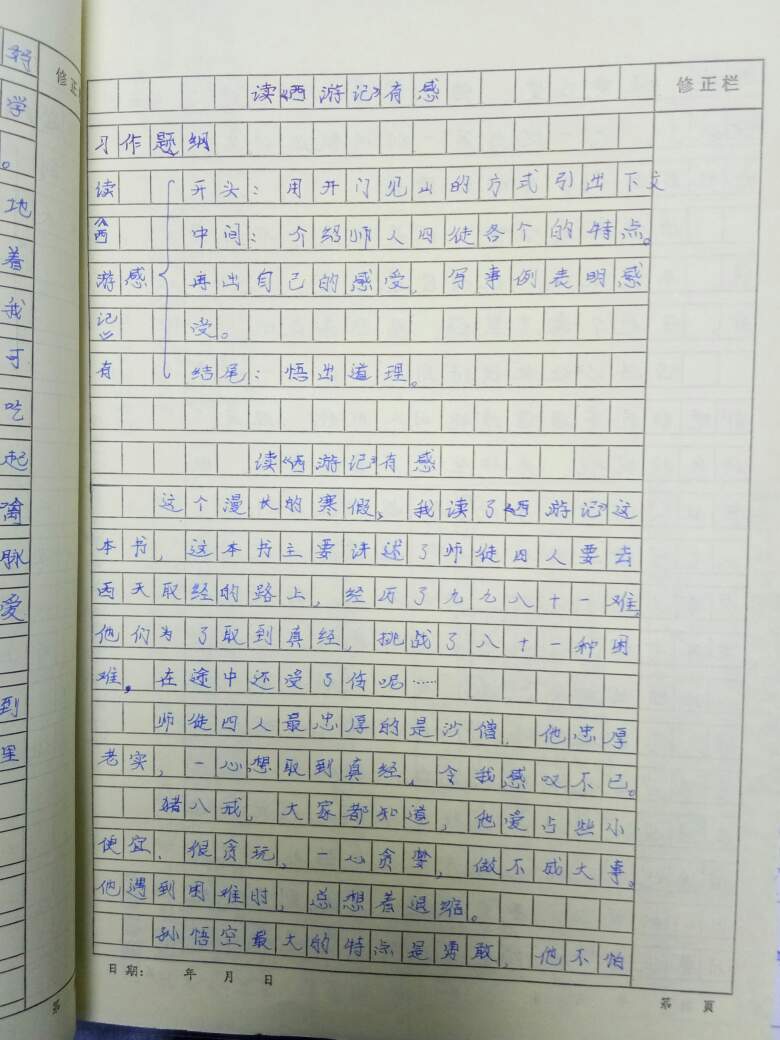 转
学
。
地
着
我
可
吃
起
脉
爱
到
里
修正
第
修正栏
读《西游记》有感
习作题纲
读 开头：用开门见山的方式引出下文
《西 中间：介绍师人四徒各个的特点。
游感 再出自己的感受，写事例表明感
记》 受。
有 结尾：悟出道理。
读《西游记》有感
这个漫长的寒假，我读了《西游记》这
本书，这本书主要讲述了师徒四人要去
西天取经的路上，经历了九九八十一难。
他们为了取到真经，挑战了八十一种困
难，在途中还受了伤呢……
师徒四人最忠厚的是沙僧，他忠厚
老实，一心想取到真经，令我感叹不已。
猪八戒，大家都知道，他爱占些小
便宜、很贪玩，一心贪婪，做不成大事。
他遇到困难时，总想着退缩。
孙悟空最大的特点是勇敢，他不怕
日期： 年 月 日
第 页